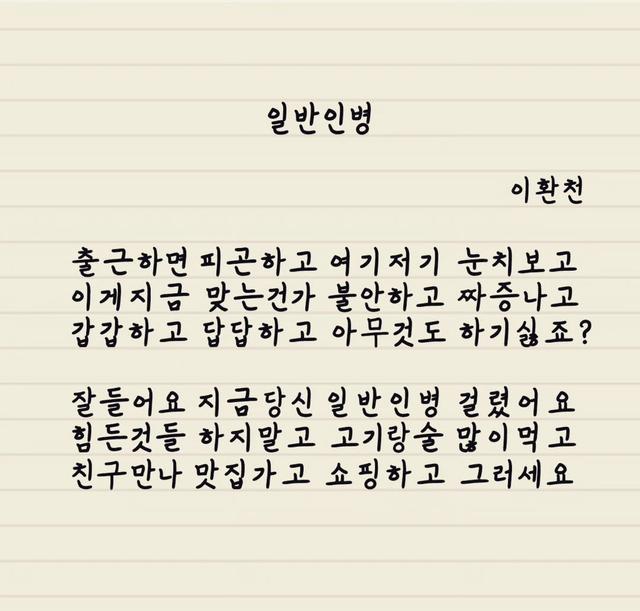 일반인병
이환천
출근하면 피곤하고 여기저기 눈치보고
이게지금 맞는건가 불안하고 짜증나고
갑갑하고 답답하고 아무것도 하기싫죠?
잘들어요 지금당신 일반인병 걸렸어요
힘든것들 하지말고 고기랑술 많이먹고
친구만나 맛집가고 쇼핑하고 그러세요